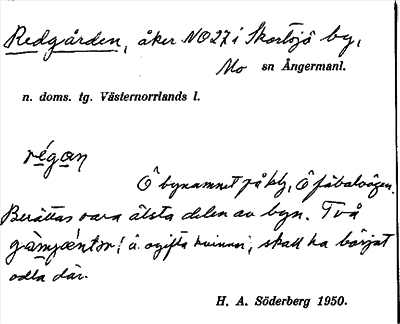 Redgården, åker NO 27 i Skortsjö by,
Mo sn Ångermanl.
n. doms. tg. Västernorrlands l.
régan
Ö bynamnet på kg, Ö fäbolvägen.
Berättas vara älsta delen av byn. Två
ogifta kvinnor, skall ha börjat
odla där.
H. A. Söderberg 1950.